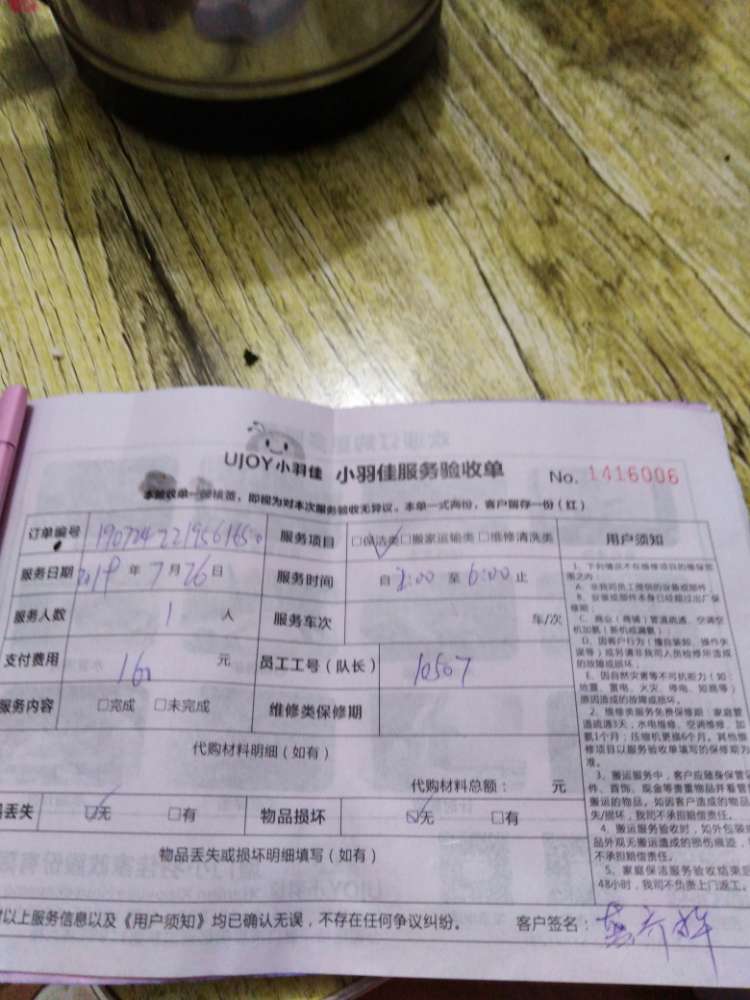 UJOY小羽佳 小羽佳服务验收单 No. 1416006
本验收单一经填签，即视为对本次服务验收无异议。本单一式两份，客户留存一份（红）
订单编号 服务项目 □保洁类□搬家运输类□维修清洗类 用户须知
服务日期 2019 年 7 月 26 日 服务时间 自 2:00 至 6:00 止
服务人数 1 人 服务车次 车/次
支付费用 160 元 员工工号（队长） 10507
服务内容 □完成 □未完成 维修类保修期
1、下列情况不在维修项目的维保范围之内：
A、非我司员工提供的设备或部件；
B、设备或部件本身已经超过出厂保修期；
C、商业（商铺）管道疏通、空调空机加氟（新机或漏氟）；
D、因客户行为（擅自装卸、操作失误等）或另请非我司人员检修所造成的故障或损坏；
E、因自然灾害等不可抗能力（如：地震、雷电、火灾、停电、如雨等）原因造成的故障或损坏。
2、维修类服务免费保修期：家庭管道疏通3天，水电维修、空调维修、加氟1个月；压缩机更换6个月。其他维修项目以服务验收单填写的保修期为准。
3、搬运服务中，客户应随身保管
件、首饰、现金等贵重物品并看管
搬运的物品，如因客户造成的物品
失/损坏，我司不承担赔偿责任。
4、搬运服务验收时，如外包装
品外观无搬运造成的损伤痕迹，
不承担赔偿责任。
5、家庭保洁服务验收结束后
48小时，我司不负责上门返工。
代购材料明细（如有）
代购材料总额： 元
丢失 □无 □有 物品损坏 □无 □有
物品丢失或损坏明细填写（如有）
以上服务信息以及《用户须知》均已确认无误，不存在任何争议纠纷。 客户签名：